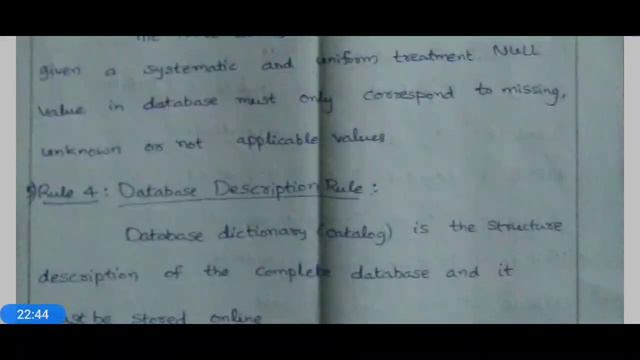 given a systematic and uniform treatment. NULL
value in database must only correspond to missing,
unknown or not applicable values.
5) Rule 4 : Database Description Rule :
Database dictionary (catalog) is the structure
description of the complete database and it
be stored online
22:44